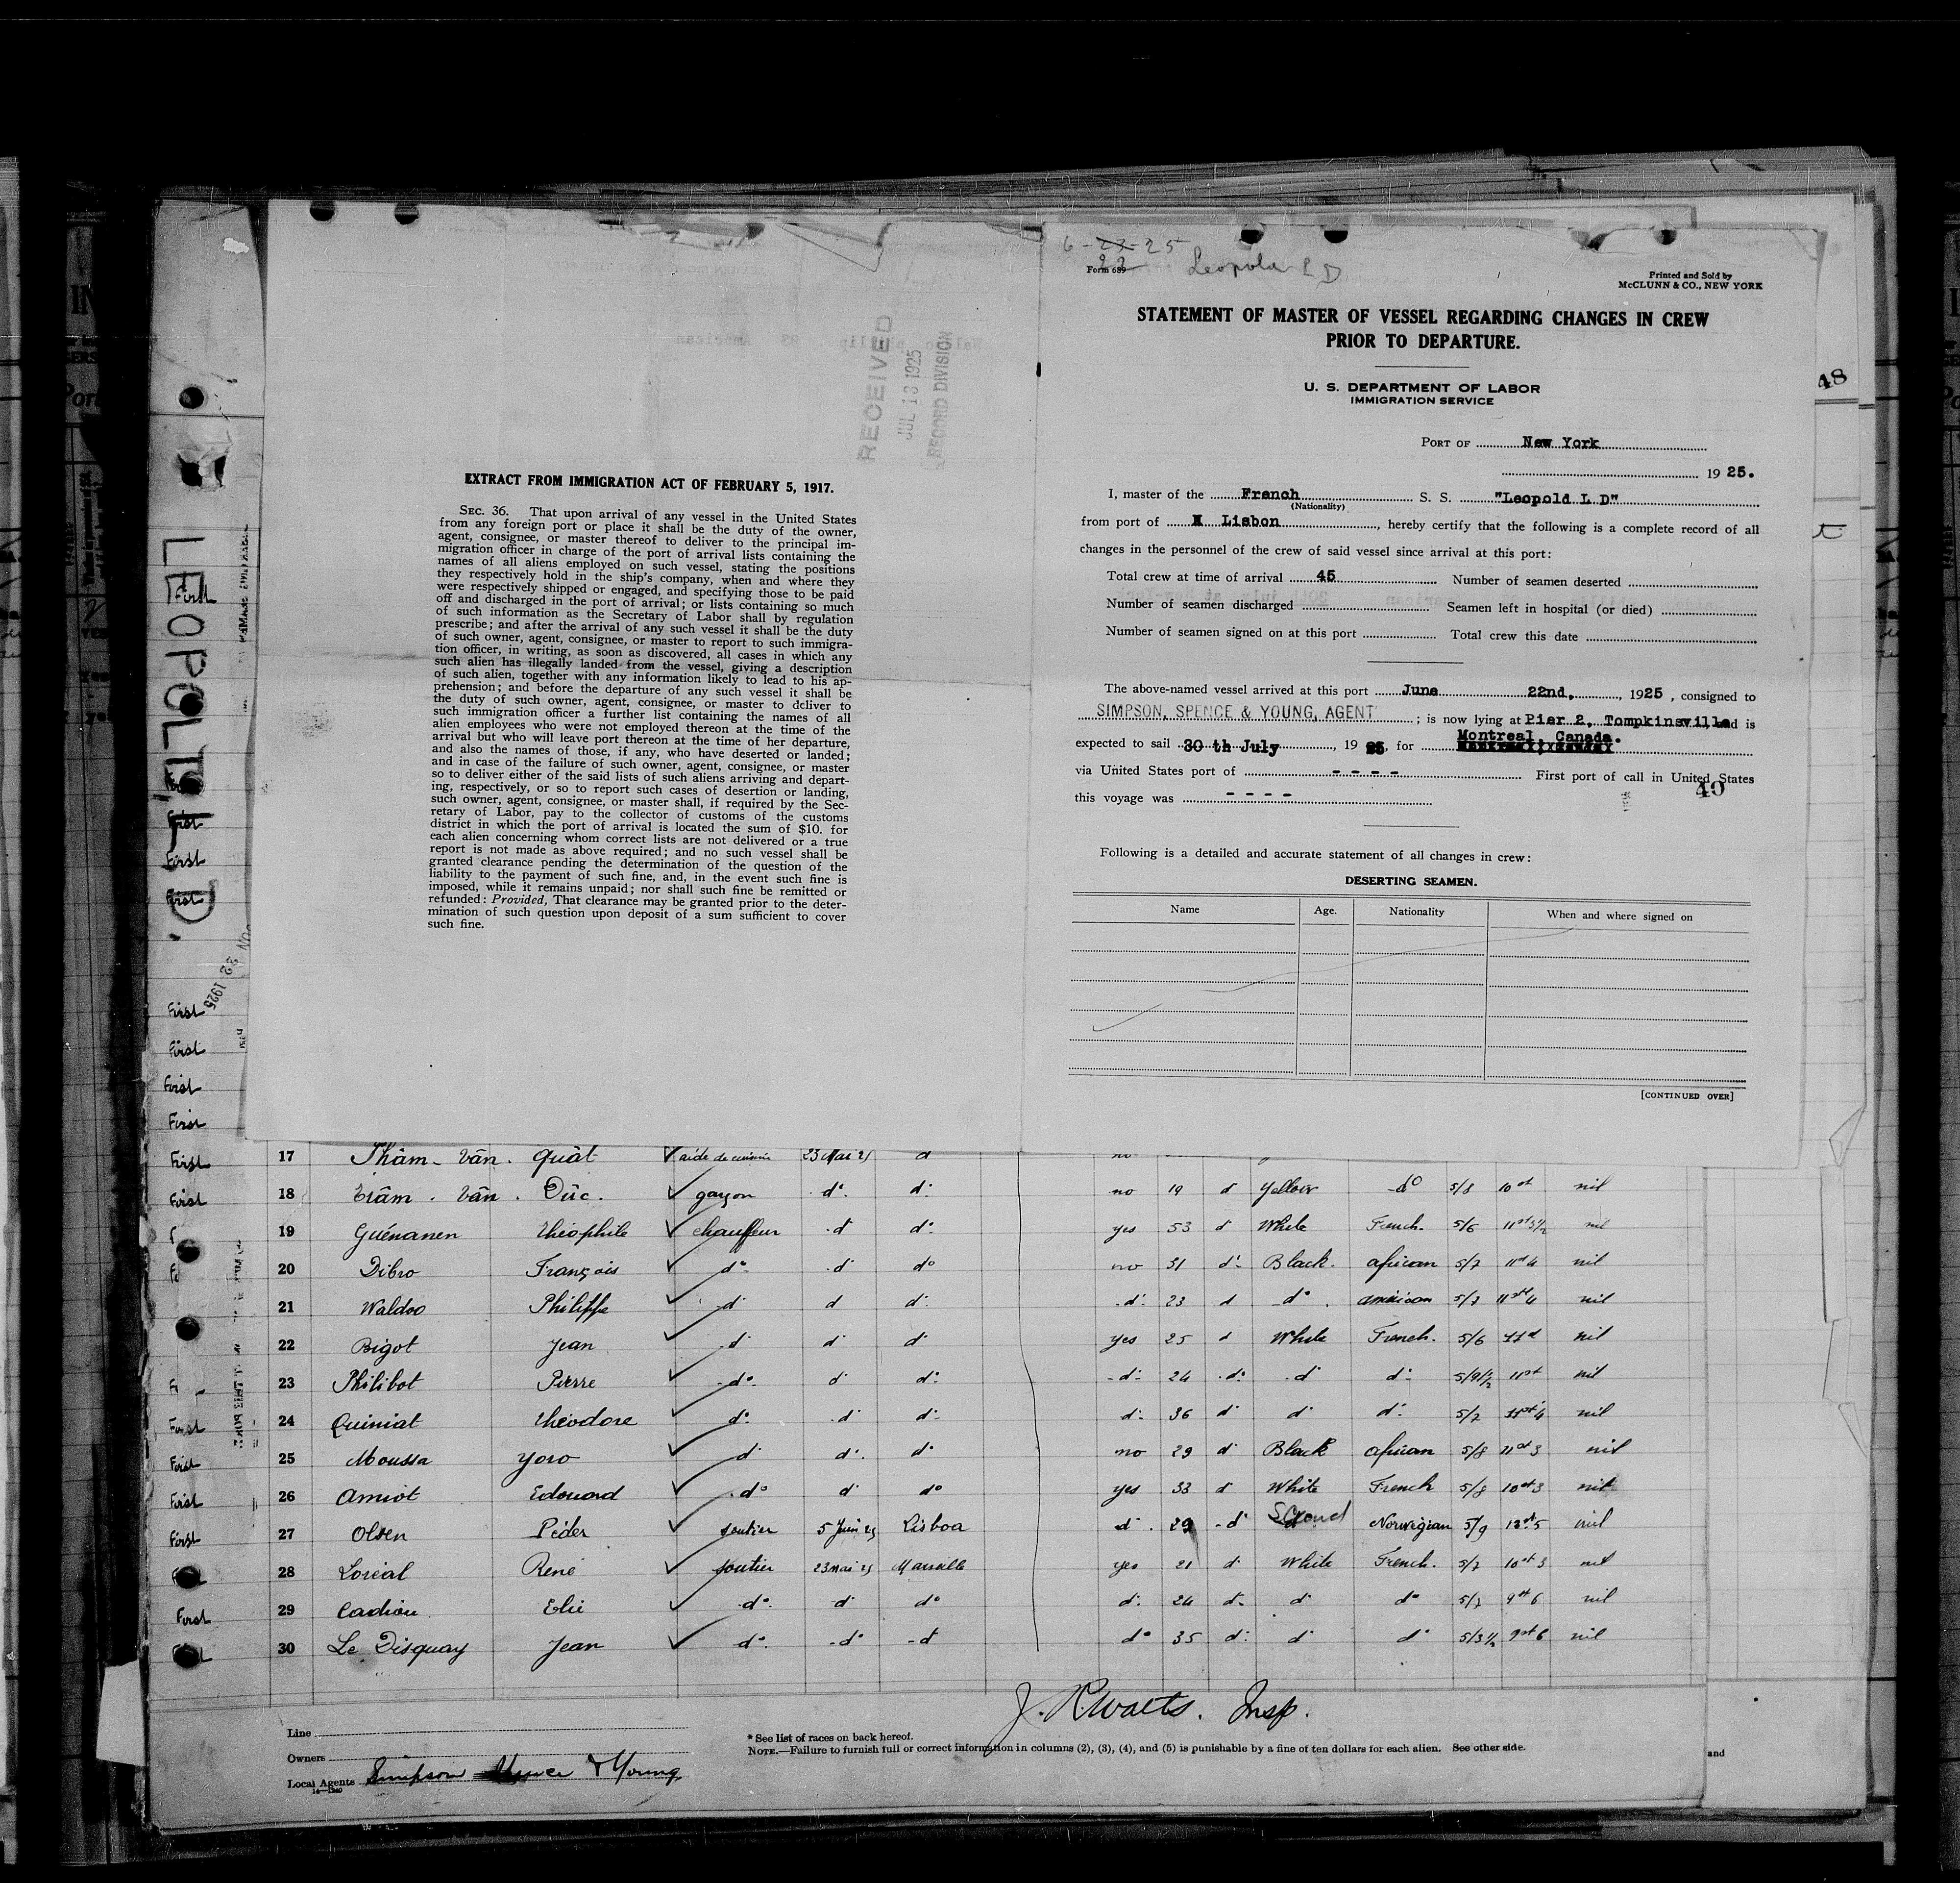 EXTRACT FROM IMMIGRATION ACT OF FEBRUARY 5, 1917.
SEC. 36. That upon arrival of any vessel in the United States
from any foreign port or place it shall be the duty of the owner,
agent, consignee, or master thereof to deliver to the principal im-
migration officer in charge of the port of arrival lists containing the
names of all aliens employed on such vessel, stating the positions
they respectively hold in the ship's company, when and where they
were respectively shipped or engaged, and specifying those to be paid
off and discharged in the port of arrival; or lists containing so much
of such information as the Secretary of Labor shall by regulation
prescribe; and after the arrival of any such vessel it shall be the duty
of such owner, agent, consignee, or master to report to such immigra-
tion officer, in writing, as soon as discovered, all cases in which any
such alien has illegally landed from the vessel, giving a description
of such alien, together with any information likely to lead to his ap-
prehension; and before the departure of any such vessel it shall be
the duty of such owner, agent, consignee, or master to deliver to
such immigration officer a further list containing the names of all
alien employees who were not employed thereon at the time of the
arrival but who will leave port thereon at the time of her departure,
and also the names of those, if any, who have deserted or landed;
and in case of the failure of such owner, agent, consignee, or master
so to deliver either of the said lists of such aliens arriving and depart-
ing, respectively, or so to report such cases of desertion or landing,
such owner, agent, consignee, or master shall, if required by the Sec-
retary of Labor, pay to the collector of customs of the customs
district in which the port of arrival is located the sum of $10. for
each alien concerning whom correct lists are not delivered or a true
report is not made as above required; and no such vessel shall be
granted clearance pending the determination of the question of the
liability to the payment of such fine, and, in the event such fine is
imposed, while it remains unpaid; nor shall such fine be remitted or
refunded: Provided, That clearance may be granted prior to the deter-
mination of such question upon deposit of a sum sufficient to cover
such fine.
RECEIVED
JUL 13 1925
RECORD DIVISION
LEOPOLD L D.
6-23-25
22
Leopold L D
Form 689
Printed and Sold by
McCLUNN & CO., NEW YORK
STATEMENT OF MASTER OF VESSEL REGARDING CHANGES IN CREW
PRIOR TO DEPARTURE.
U. S. DEPARTMENT OF LABOR
IMMIGRATION SERVICE
PORT OF New York
1925.
I, master of the French S. S. "Leopold L D"
(Nationality)
from port of Lisbon, hereby certify that the following is a complete record of all
changes in the personnel of the crew of said vessel since arrival at this port:
Total crew at time of arrival 45 Number of seamen deserted
Number of seamen discharged Seamen left in hospital (or died)
Number of seamen signed on at this port Total crew this date
The above-named vessel arrived at this port June 22nd, 1925, consigned to
SIMPSON, SPENCE & YOUNG, AGENT; is now lying at Pier 2, Tompkinsville and is
Montreal, Canada.
expected to sail 30 th July, 1925, for
via United States port of - - - - First port of call in United States
this voyage was - - - -
49
48
Following is a detailed and accurate statement of all changes in crew:
DESERTING SEAMEN.
Name Age. Nationality When and where signed on
[CONTINUED OVER]
First 17 Phâm Vân. Quât aide de cuisine 23 Mai 25 d
First 18 Trâm. Vân. Dûc. garçon d°. d° no 19 d Yellow d° 5/8 10st nil
19 Guénanen Théophile chauffeur d d° yes 53 d White French. 5/6 11st 3½ nil
20 Dibro François d° d d° no 31 d° Black. African 5/7 11st 4 nil
21 Waldoo Philippe d d d° d° 23 d d°. American 5/7 11st 4 nil
22 Bigot Jean d d d yes 25 d White French. 5/6 11st nil
23 Philibot Pierre d° d d° d° 24 d° d d° 5/9½ 11st nil
First 24 Quiniat Théodore d° d d° d° 36 d d d° 5/7 11st 4 nil
First 25 Moussa Yoro d d° d° no 29 d Black African 5/8 11st 3 nil
First 26 Amiot Edouard d° d d° yes 33 d White French 5/8 10st 3 nil
First 27 Olsen Péder soutier 5 Juin 25 Lisboa d. 29 d Scand Norwegian 5/9 12st 5 nil
28 Loréal René soutier 23 mai 25 Marseille yes 21 d White French. 5/7 10st 3 nil
First 29 Cadiou Elie d° d d° d° 24 d d d° 5/7 9st 6 nil
30 Le Disquay Jean d° d° d d° 35 d° d d° 5/3½ 9st 6 nil
J. R. Watts. Insp.
Line
Owners
Local Agents Simpson Spence & Young
* See list of races on back hereof.
NOTE.—Failure to furnish full or correct information in columns (2), (3), (4), and (5) is punishable by a fine of ten dollars for each alien. See other side.
and